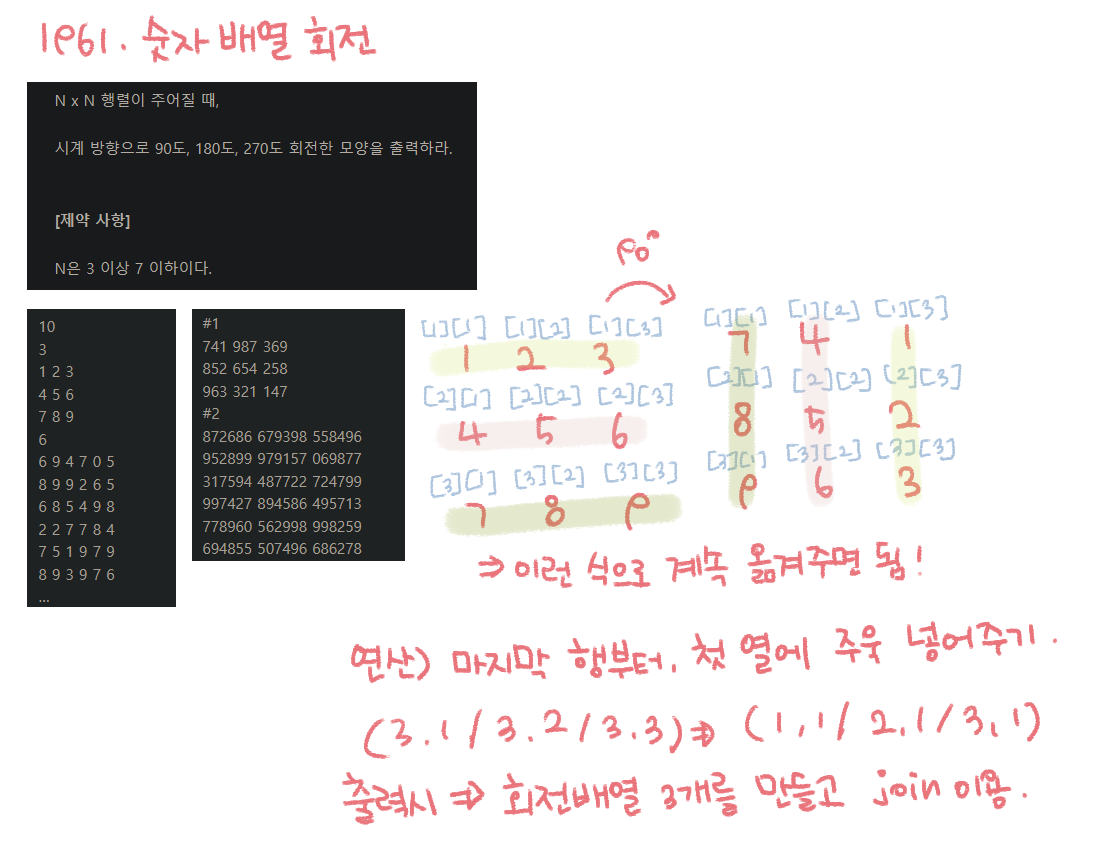 1961. 숫자 배열 회전
N x N 행렬이 주어질 때,
시계 방향으로 90도, 180도, 270도 회전한 모양을 출력하라.
[제약 사항]
N은 3 이상 7 이하이다.
10
3
1 2 3
4 5 6
7 8 9
6
6 9 4 7 0 5
8 9 9 2 6 5
6 8 5 4 9 8
2 2 7 7 8 4
7 5 1 9 7 9
8 9 3 9 7 6
...
#1
741 987 369
852 654 258
963 321 147
#2
872686 679398 558496
952899 979157 069877
317594 487722 724799
997427 894586 495713
778960 562998 998259
694855 507496 686278
90°
[1][1] [1][2] [1][3]
1 2 3
[2][1] [2][2] [2][3]
4 5 6
[3][1] [3][2] [3][3]
7 8 9
[1][1] [1][2] [1][3]
7 4 1
[2][1] [2][2] [2][3]
8 5 2
[3][1] [3][2] [3][3]
9 6 3
⇒ 이런 식으로 계속 옮겨주면 됨!
연산) 마지막 행부터, 첫 열에 주욱 넣어주기.
(3.1 / 3.2 / 3.3) ⇒ (1,1 / 2,1 / 3,1)
출력시 ⇒ 회전배열 3개를 만들고 join 이용.